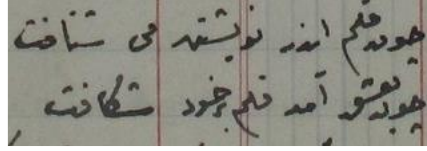 چون قلم اندر نوشتن می شتافت
چون بعشق آمد قلم بر خود شکافت